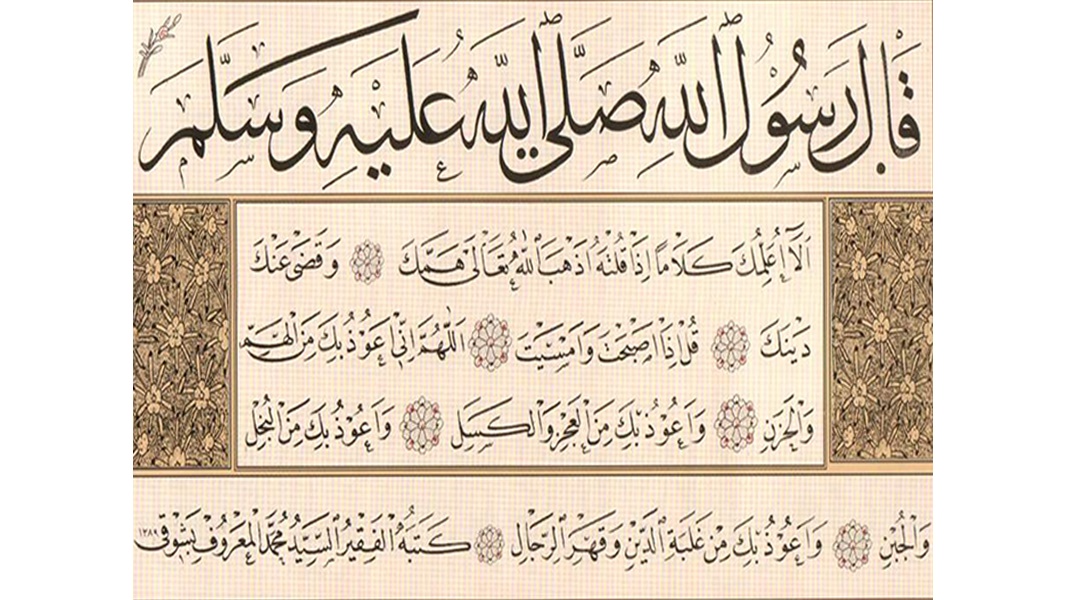 قَالَ رَسُولُ اللهِ صَلَّى اللهُ عَلَيْهِ وَسَلَّمَ
اَلَآ اُعَلِّمُكَ كَلَامًا اِذَا قُلْتَهُ اَذْهَبَ اللّٰهُ تَعَالَى هَمَّكَ وَقَضَى عَنْكَ
دَيْنَكَ قُلْ اِذَا اَصْبَحْتَ وَاَمْسَيْتَ اَللّٰهُمَّ اِنِّي اَعُوْذُ بِكَ مِنَ الْهَمِّ
وَالْحَزَنِ وَاَعُوْذُ بِكَ مِنَ الْعَجْزِ وَالْكَسَلِ وَاَعُوْذُ بِكَ مِنَ الْبُخْلِ
وَالْجُبْنِ وَاَعُوْذُ بِكَ مِنْ غَلَبَةِ الدَّيْنِ وَقَهْرِ الرِّجَالِ كَتَبَهُ الْفَقِيْرُ السَّيِّدُ مُحَمَّدُ الْمَعْرُوْفُ بِشَوْقِى ١٢٨٩